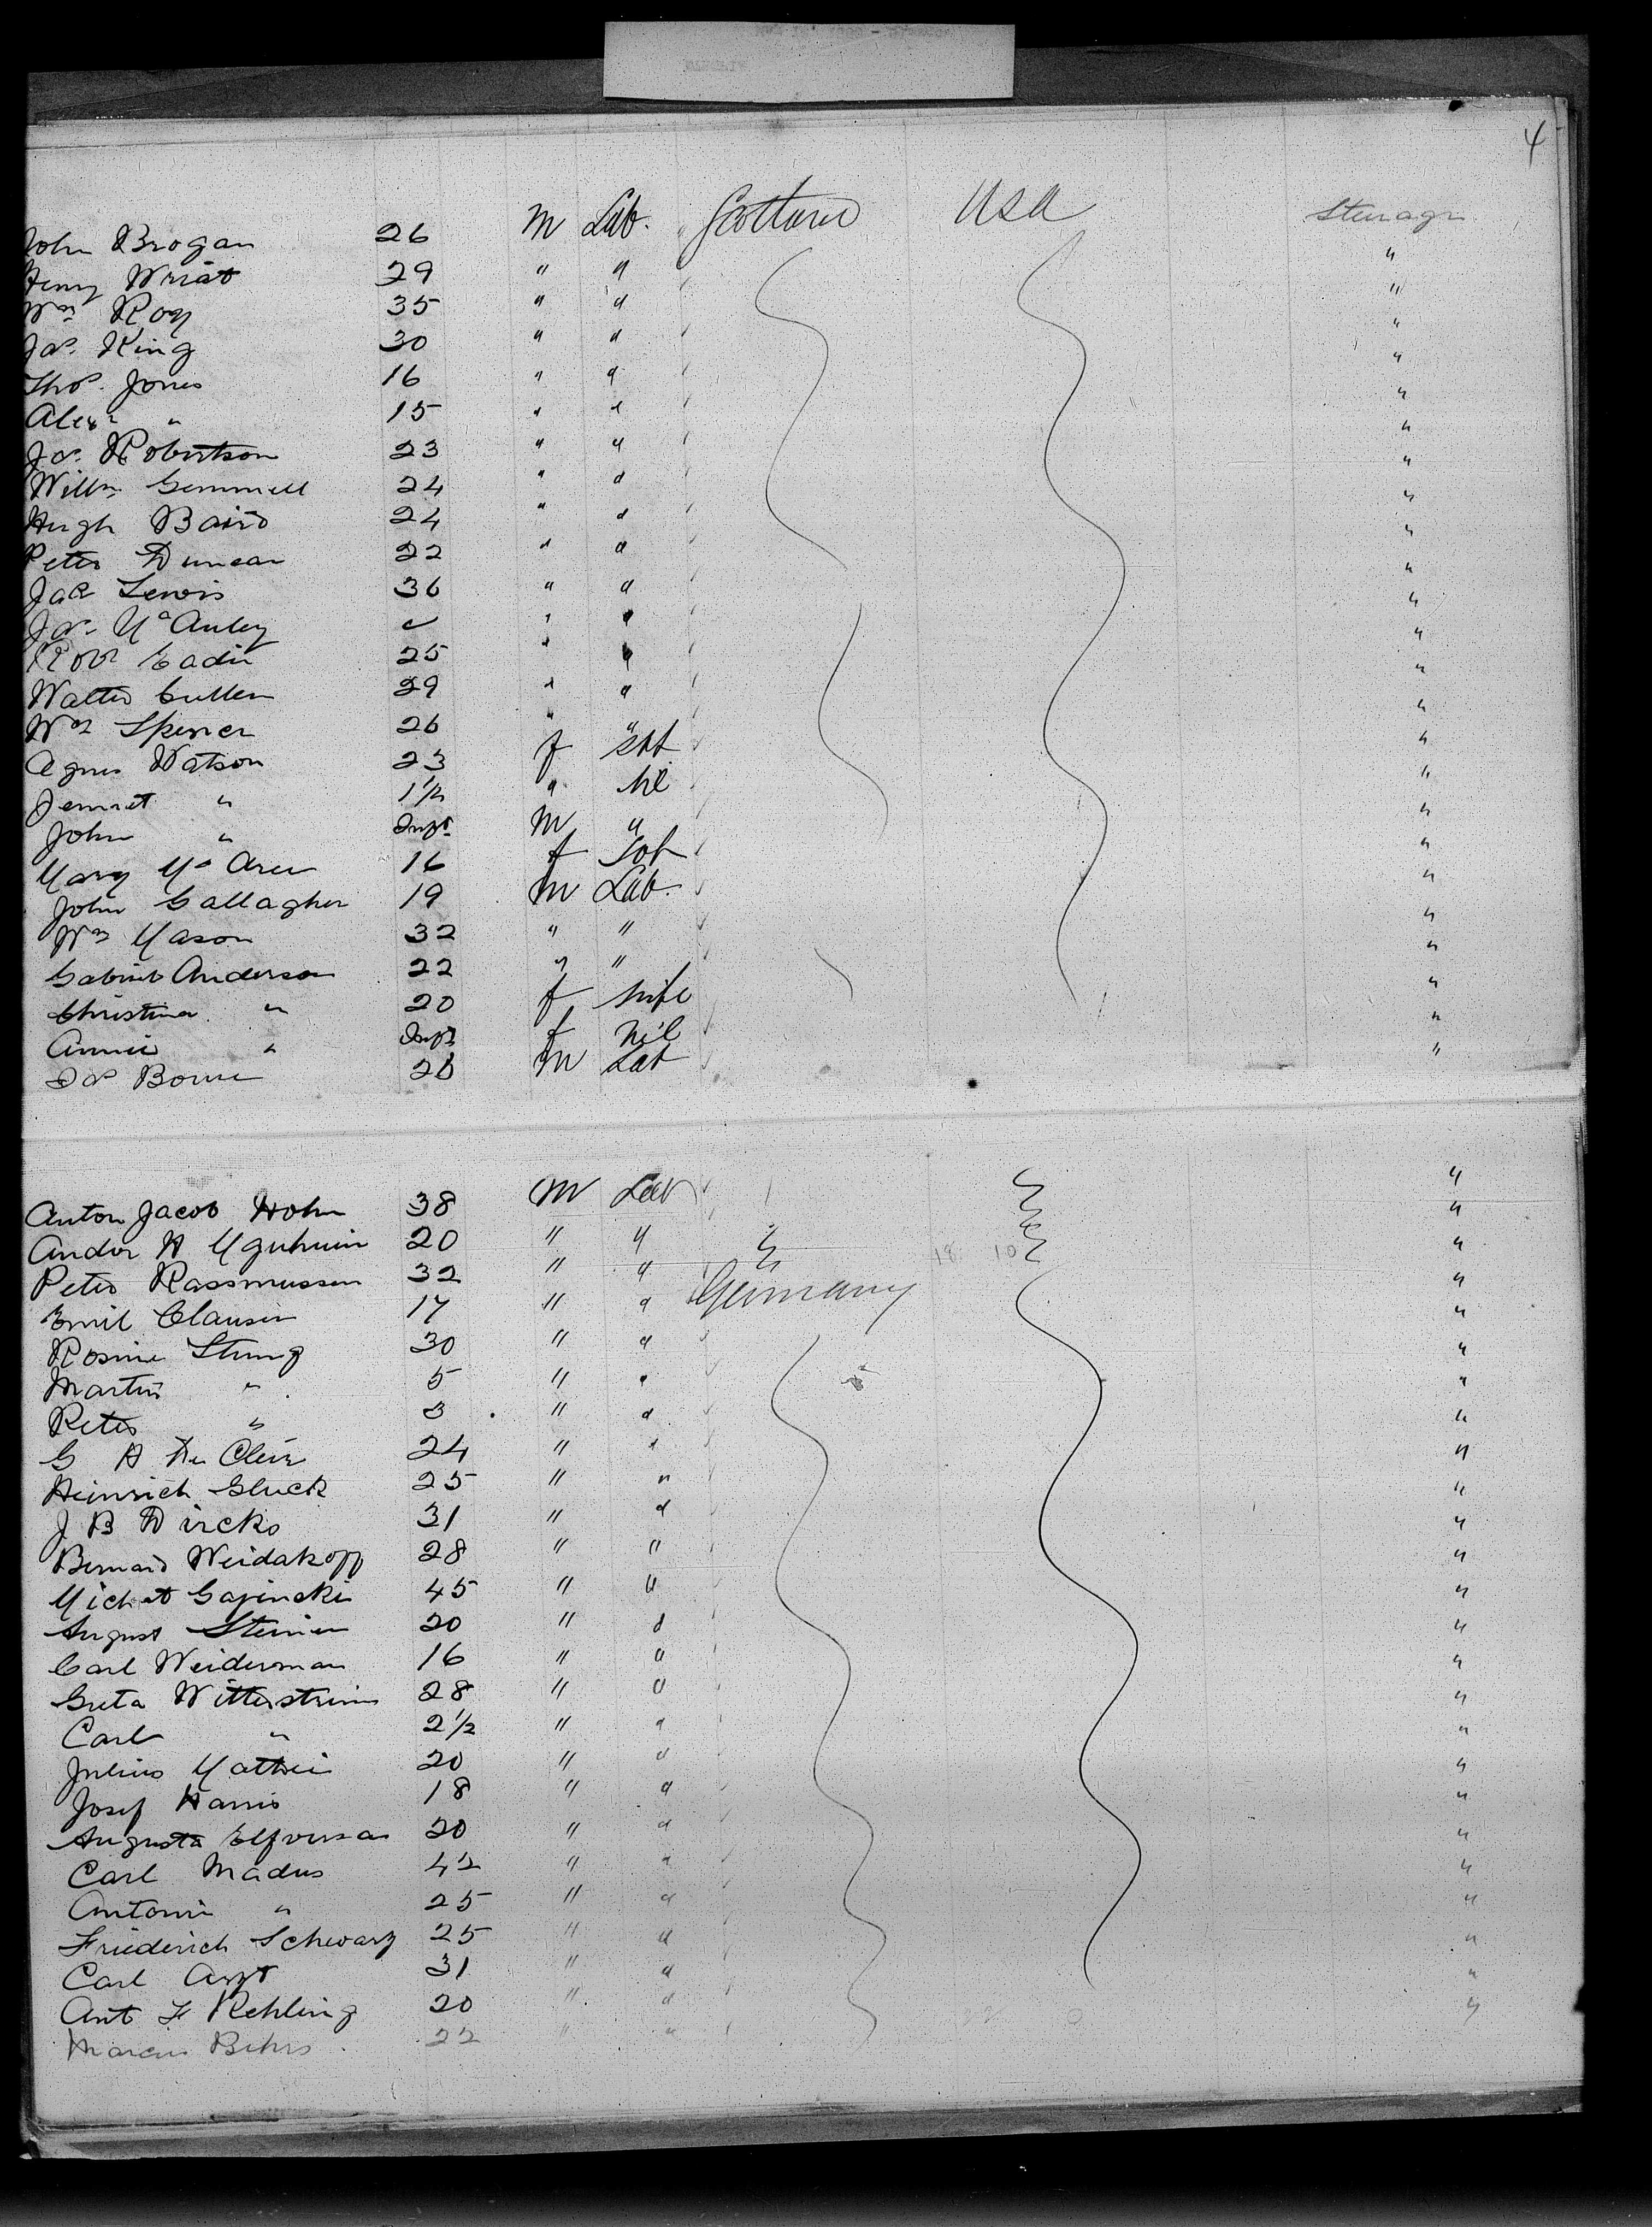 4
John Brogan 26 M Lab. Scotland USA Steerage
Henry Wriat 29 " " "
Wm Roy 35 " " "
Jas. King 30 " " "
Thos. Jones 16 " " "
Alexr " 15 " " "
Jas. Robertson 23 " " "
Willm Gemmell 24 " " "
Hugh Baird 24 " " "
Peter Duncan 22 " " "
Jas Lewis 36 " " "
Jas. McAuley " " " "
Robt Eadie 25 " " "
Walter Cullen 29 " " "
Wm Spencer 26 " " "
Agnes Watson 23 f "
Jennet " 1 1/2 " Nil "
John " Inft M " "
Mary Mc 16 f "
John Gallagher 19 M Lab. "
Wm Mason 32 " " "
Gabriel Anderson 22 " " "
Christina " 20 f wife "
Annie " Inft f Nil "
Jas Bowie 26 M Lab "
Anton Jacob Hohn 38 M Lab "
Andor H 20 " " " "
Peter Rassmussen 32 " " " "
Emil Clausen 17 " " Germany "
Rosine 30 " " "
Martin " 5 " " "
Peter " 3 " " "
G H De Clerr 24 " " "
Heinrich Gluck 25 " " "
J B Dircks 31 " " "
Bernard Weidakopp 28 " " "
Gapinski 45 " " "
August Steiner 20 " " "
Carl Weiderman 16 " " "
Greta 28 " " "
Carl " 2 1/2 " " "
Julius Mathei 20 " " "
Josef Harris 18 " " "
Augusta 20 " " "
Carl Madus 42 " " "
Antonie " 25 " " "
Friederich Schwarz 25 " " "
Carl Arzt 31 " " "
Ant F Rehling 20 " " "
Marcus Behrs 22 " "